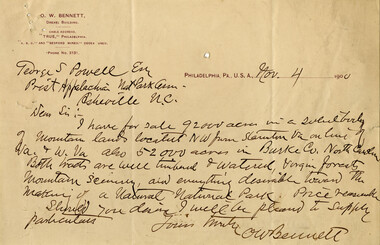 O. W. BENNETT,
DREXEL BUILDING.
CABLE ADDRESS,
"TRUE," PHILADELPHIA.
A. B. C. AND "BEDFORD MCNEIL" CODES USED.
PHONE NO.
PHILADELPHIA, PA., U.S.A., Nov. 4 190
George S Powell Esq
Prest Appalachian Nat Park Assn
Asheville N.C.
Dear Sir:-
I have for sale 92000 acres in a solid body
of Mountain lands, located N.W. from Staunton Va on line of
Va. & W. Va also 52000 acres in Burke Co., North Carolina
Both tracts are well timbered & watered, virgin forests,
Mountain Scenery, and everything desirable toward the
making of a Natural National Park. Price reasonable
Should you desire I will be pleased to supply
particulars
Yours truly
O W Bennett